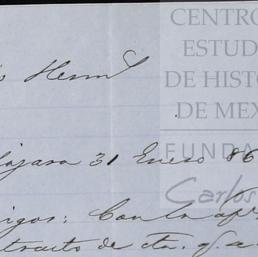 CENTRO
ESTUD
DE HISTO
DE MEX
FUNDA
Carlos
Herm
ajara 31 Enero 86
igos: Con la
tracto de cta. q. a